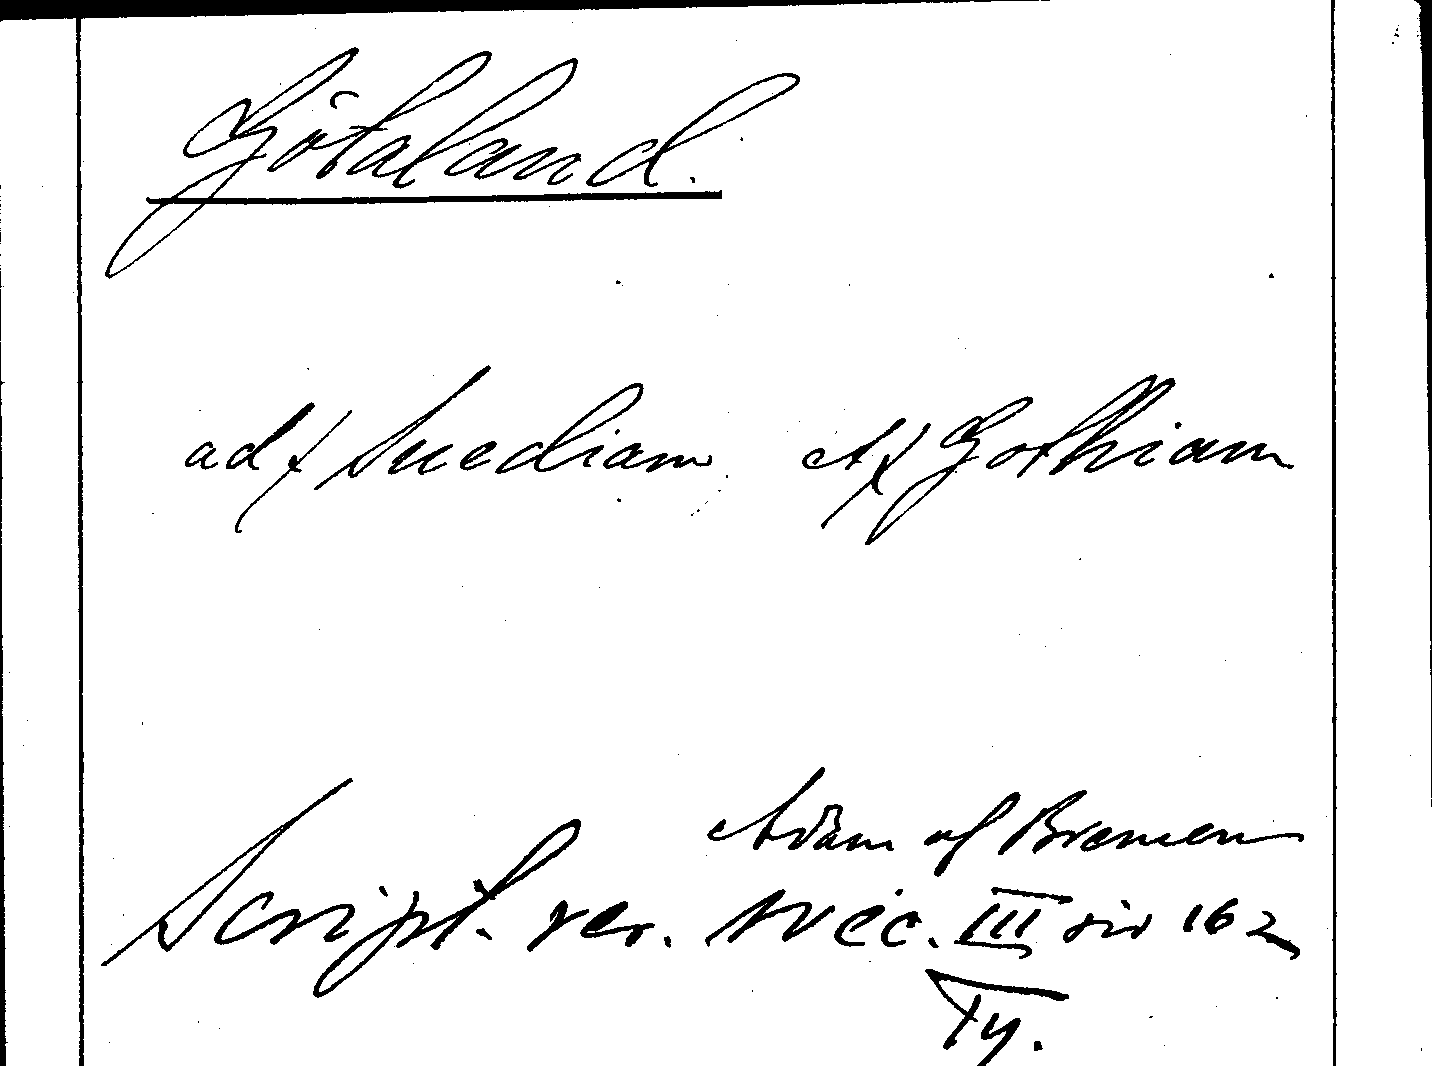 Götaland.
ad Suediam et Gothiam
Adam af Bremen
Script. rer. svec. III sid 162
Ty.